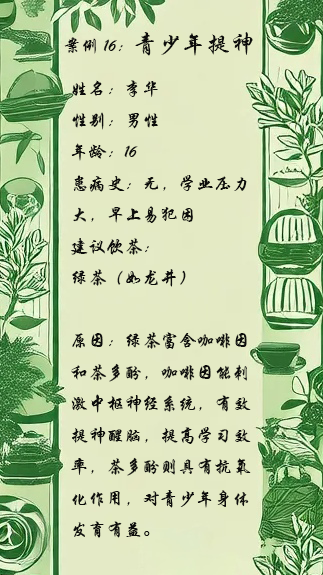 案例16：青少年提神
姓名：李华
性别：男性
年龄：16
患病史：无，学业压力
大，早上易犯困
建议饮茶：
绿茶（如龙井）
原因：绿茶富含咖啡因
和茶多酚，咖啡因能刺
激中枢神经系统，有效
提神醒脑，提高学习效
率，茶多酚则具有抗氧
化作用，对青少年身体
发育有益。